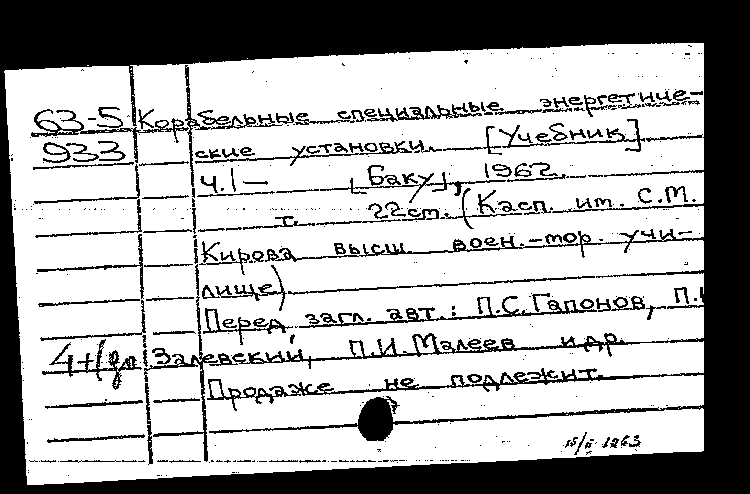 63-5 Корабельные специальные энергетиче-
933 ские установки. [Учебник].
Ч.1— [Баку], 1962.
т. 22см. (Касп. им. С.М.
Кирова высш. воен.-мор. учи-
лище).
Перед загл. авт.: П.С.Гапонов, П.
Залевский, П.И.Малеев и др.
Продаже не подлежит.
1963